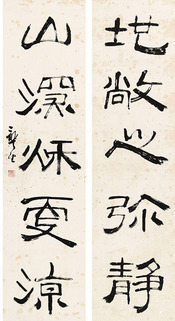 地敞心弥靜
山深秋更涼